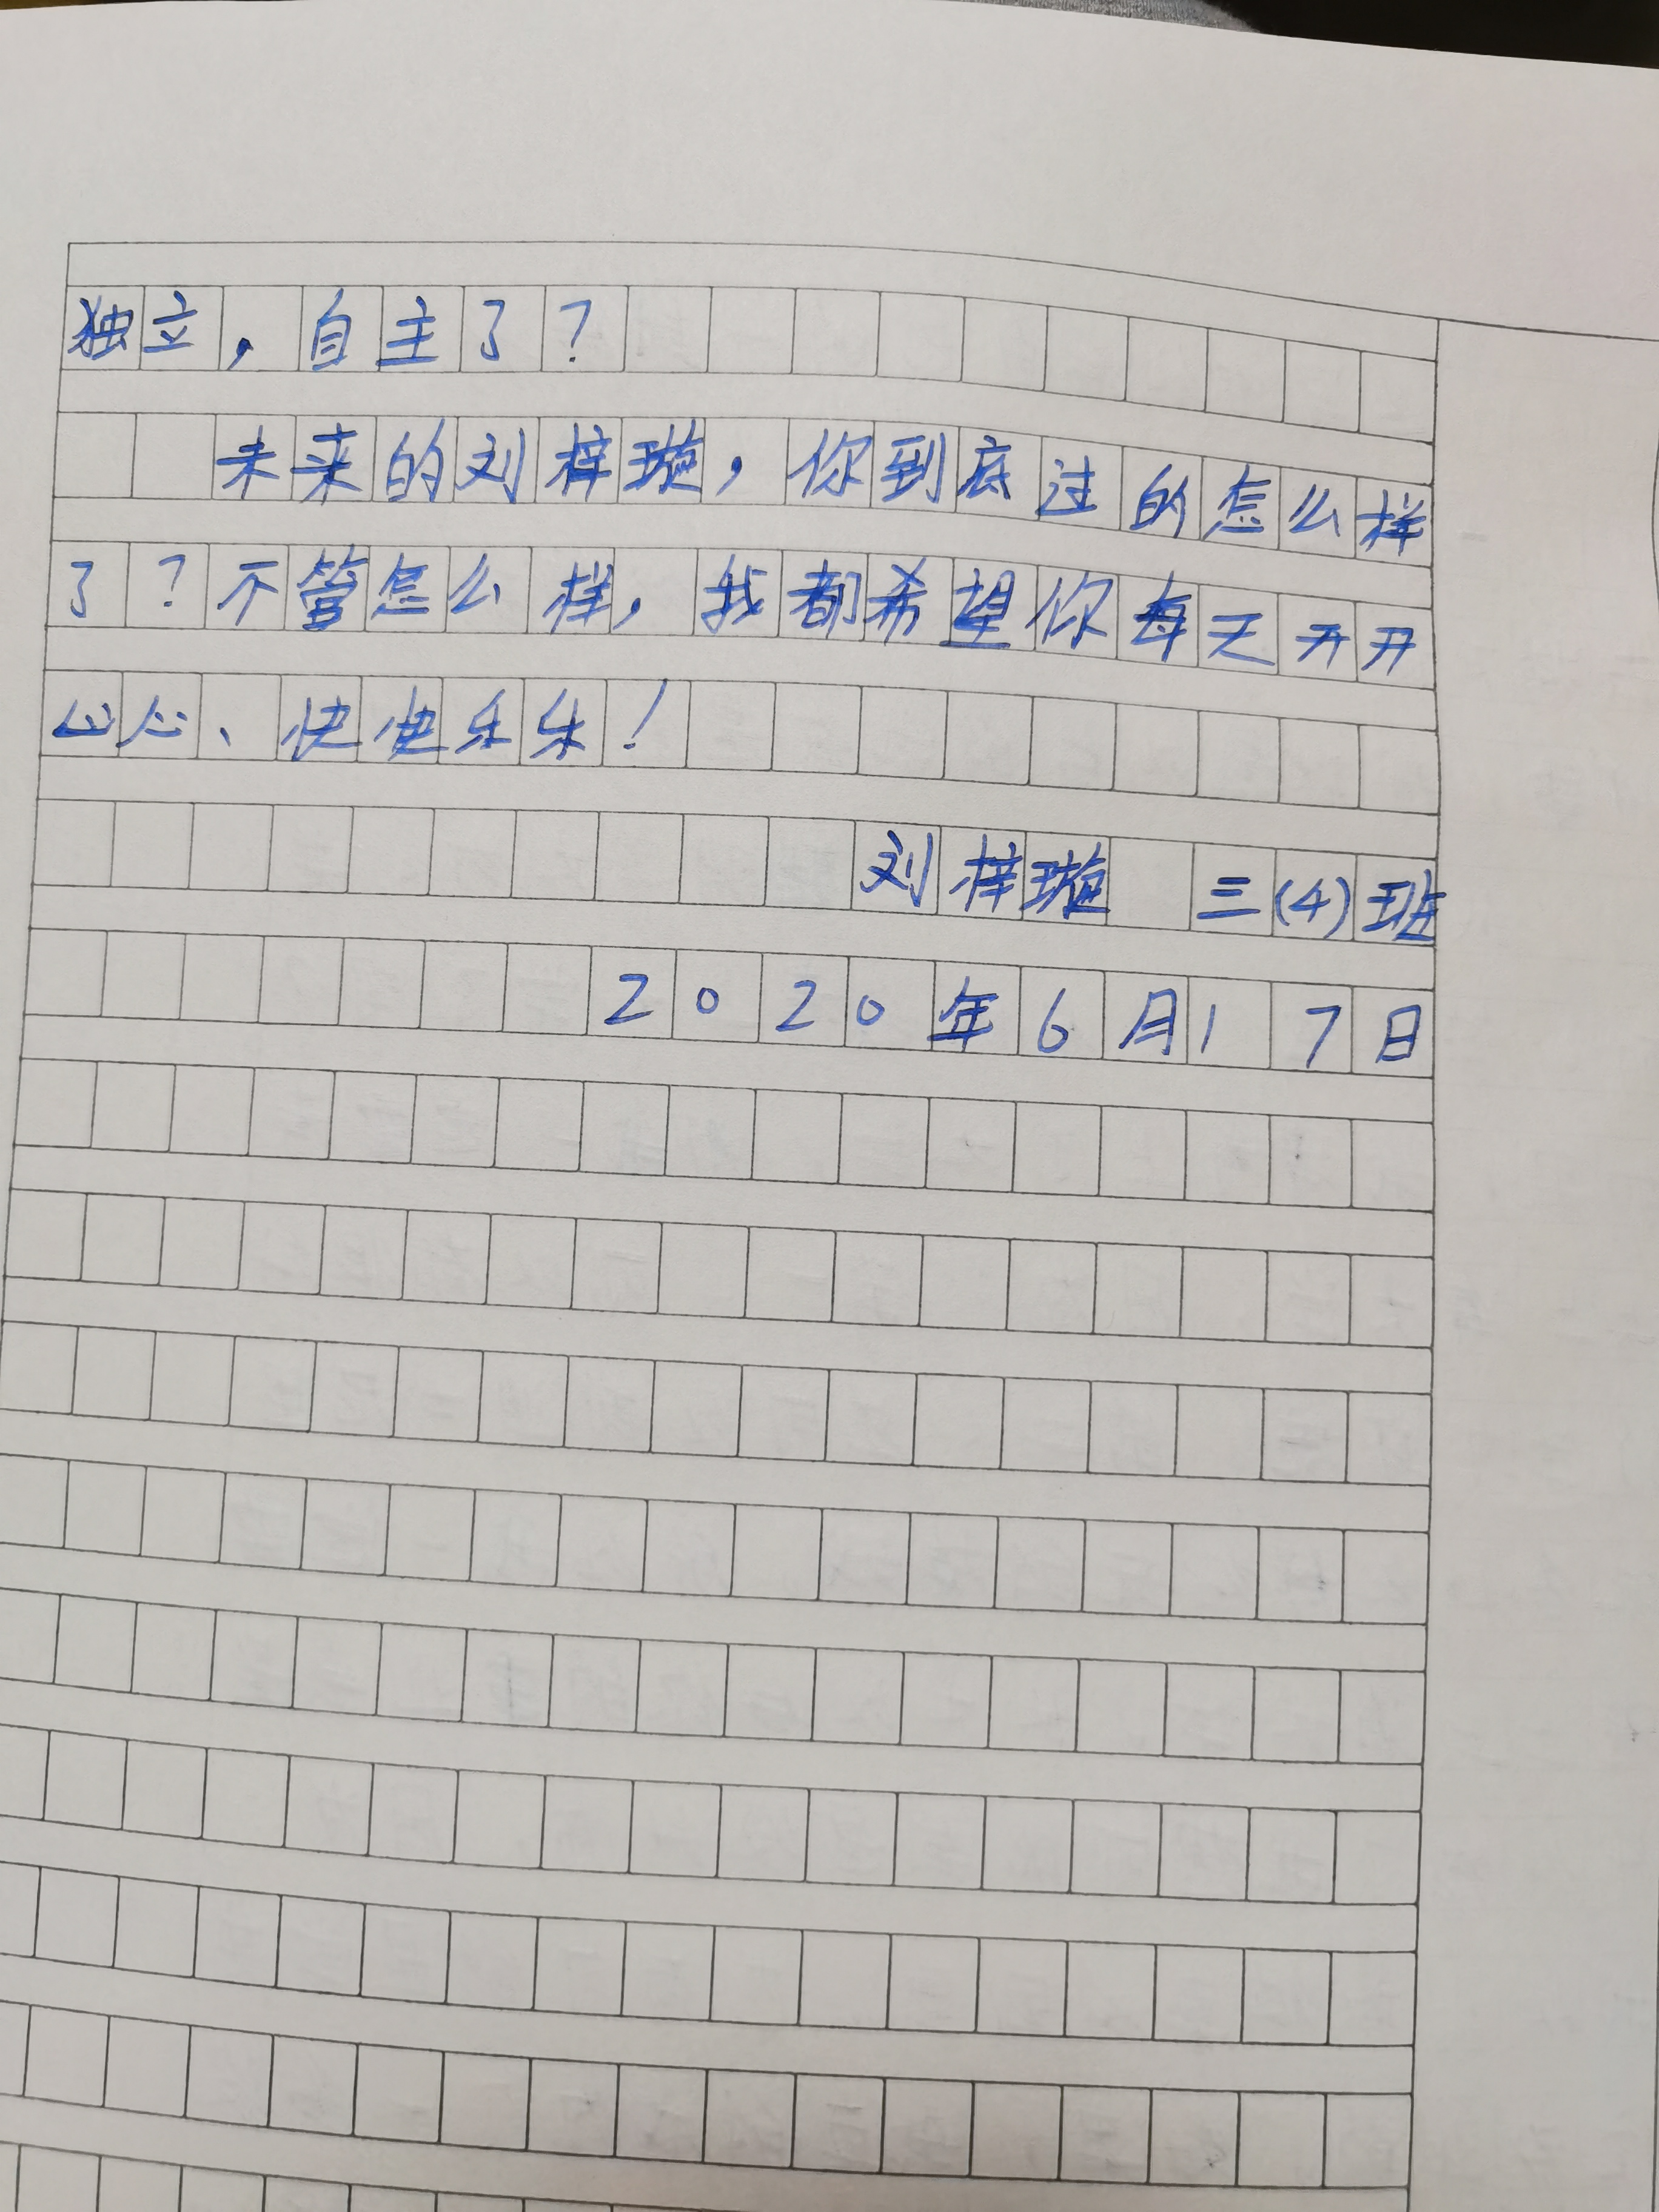 独立，自主了？
未来的刘梓璇，你到底过的怎么样
了？不管怎么样，我都希望你每天开开
心心、快快乐乐！
刘梓璇 三(4)班
2020年6月17日